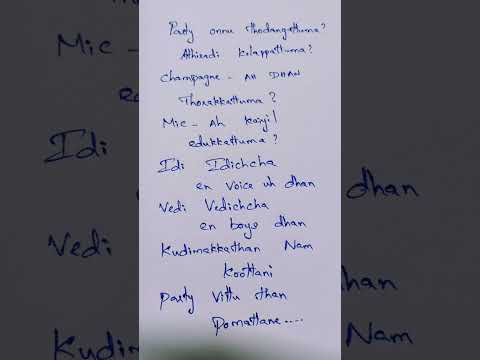 Party onnu thodangattuma?
Athiradi kelappattuma?
Champagne - AH DHAN
Thorakkattuma?
Mic - Ah kaiyil
edukkattuma?
Idi Idichcha
en voice uh dhan
Vedi Vedichcha
en boys dhan
Kudimakkathan Nam
Koottani
Party Vittu than
Pomattane....